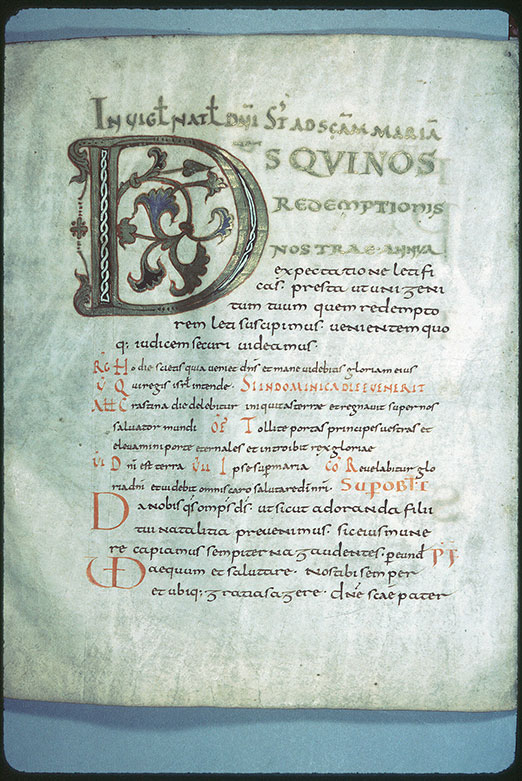 IN VIGL NATL DNI ST AD SCAM MARIA
DS QVI NOS
REDEMPTIONIS
NOSTRAE ANNVA
expectatione letifi
cas. presta ut unigeni
tum tuum quem redempto
rem leti suscipimus. venientem quo
q; iudicem securi videamus.
RG Hodie scietis quia veniet dns et mane videbitis gloriam eius
V Qui regis isrl intende. SI IN DOMINICA DIE EVENERIT
ALL Crastina die delebitur iniquitas terrae et regnavit super nos
salvator mundi OF Tollite portas principes vestras et
elevamini porte eternales et introibit rex gloriae
VI Dni est terra VII Ipse super maria CO Revelabitur glo
ria dni et videbit omnis caro salutare di nri. SUP OBLT
Da nobis qs omps ds. ut sicut adoranda filii
tui natalitia prevenimus. sic eius mune
ra capiamus sempiterna gaudentes. per eund PF
VD aequum et salutare. Nos tibi semper
et ubiq; gratias agere. dne scae pater